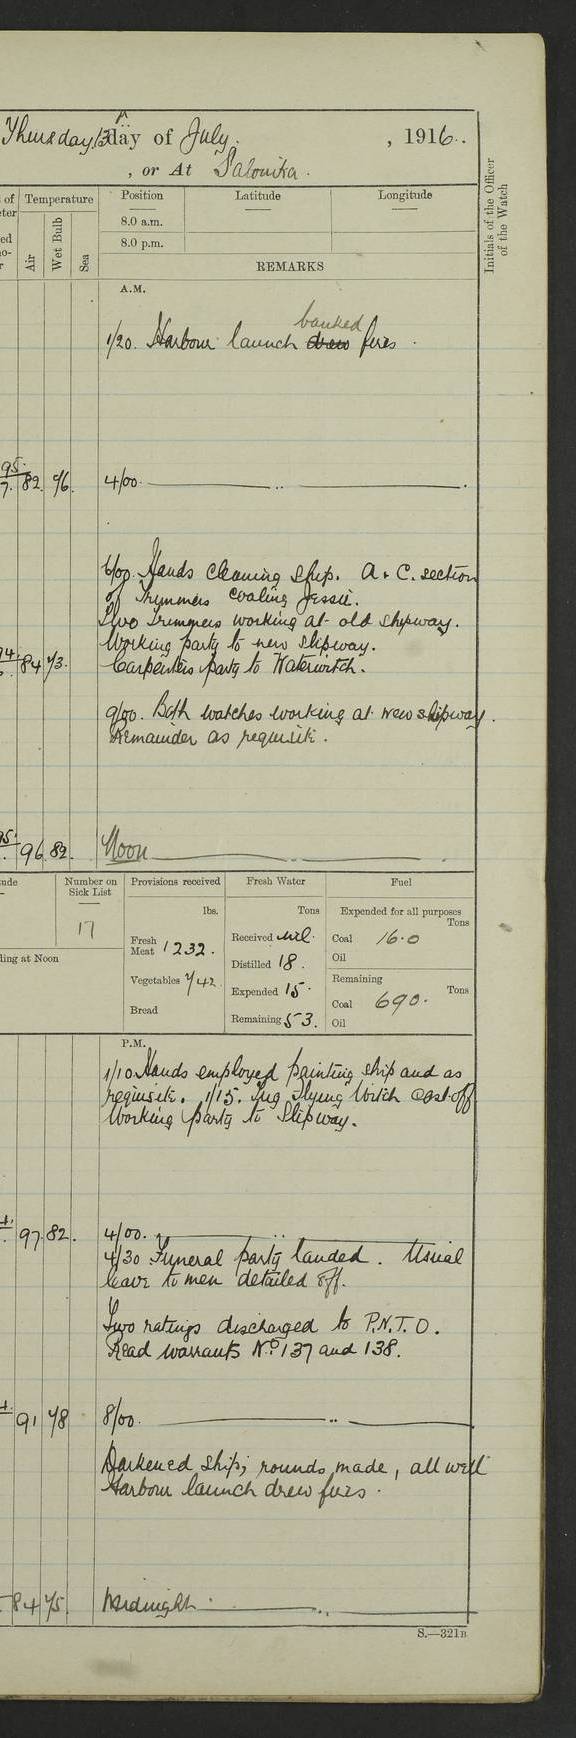 Thursday 13th day of July. , 1916.
, or At Salonika.
Initials of the Officer
of the Watch
of Temperature Position Latitude Longitude
8.0 a.m.
8.0 p.m.
Air Wet Bulb Sea
REMARKS
A.M.
banked
1/20. Harbour launch drew fires.
95. 82 76 4/00.
6/00. Hands cleaning ship. A & C. section
of Trimmers coaling Jessie.
Two Trimmers working at old slipway.
Working party to new slipway.
84 73. Carpenters party to Waterwitch.
9/00. Both watches working at new slipway.
Remainder as requisite.
95. 96 82. Noon
Number on
Sick List
17
Provisions received
lbs.
Fresh
Meat 1232.
Vegetables 742
Bread
Fresh Water
Tons
Received nil.
Distilled 18.
Expended 15.
Remaining 53.
Fuel
Expended for all purposes
Tons
Coal 16.0
Oil
Remaining
Tons
Coal 690.
Oil
ding at Noon
P.M.
1/10 Hands employed painting ship and as
requisite. 1/15. Tug Flying Witch cast off
Working party to Slipway.
97 82. 4/00.
4/30 Funeral party landed. Usual
leave to men detailed off.
Two ratings discharged to P.N.T.O.
Read warrants No. 137 and 138.
91 78 8/00.
Darkened ship; rounds made, all well
Harbour launch drew fires.
84 75. Midnight.
S.—321B